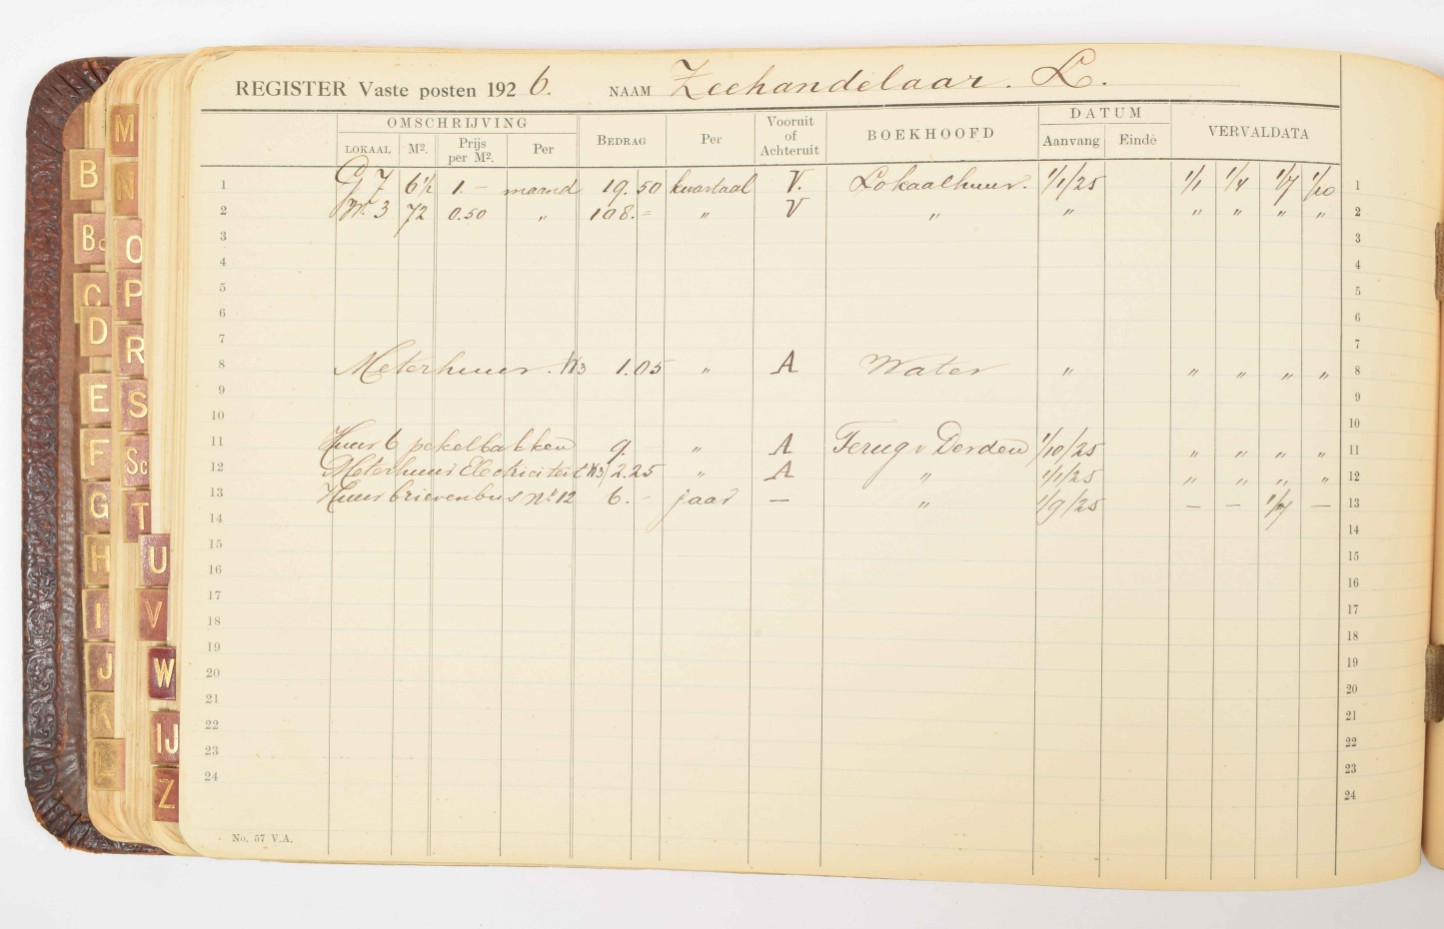 REGISTER Vaste posten 1926. NAAM Zeehandelaar. L.
OMSCHRIJVING BEDRAG Per Vooruit of Achteruit BOEKHOOFD DATUM VERVALDATA
LOKAAL M². Prijs per M². Per Aanvang Einde
1 G 7 6½ 1.- maand 19.50 kwartaal V. Lokaalhuur. 1/1/25 1/1 1/4 1/7 1/10 1
2 W. 3 72 0.50 " 108.- " V " " " " " " 2
3 3
4 4
5 5
6 6
7 7
8 Meterhuur. W3 1.05 " A Water " " " " " 8
9 9
10 10
11 Huur 6 pekelbakken 9. " A Terug v Derden 1/10/25 " " " " 11
12 Meterhuur Electriciteit W3 2.25 " A " 1/1/25 " " " " 12
13 Huur brievenbus no 12 6.- jaar - " 1/9/25 - - 1/7 - 13
14 14
15 15
16 16
17 17
18 18
19 19
20 20
21 21
22 22
23 23
24 24
No. 57 V.A.
B
Bo
C
D
E
F
G
H
I
J
K
L
M
N
O
P
R
S
Sc
T
U
V
W
IJ
Z